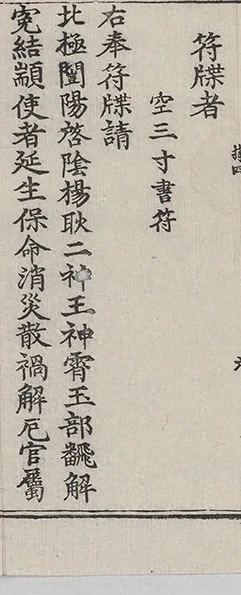 符牒者
空三寸書符
右奉符牒請
北極闓陽啓陰楊耿二神王神霄玉部飜解
寃結顓使者延生保命消災散禍解厄官屬